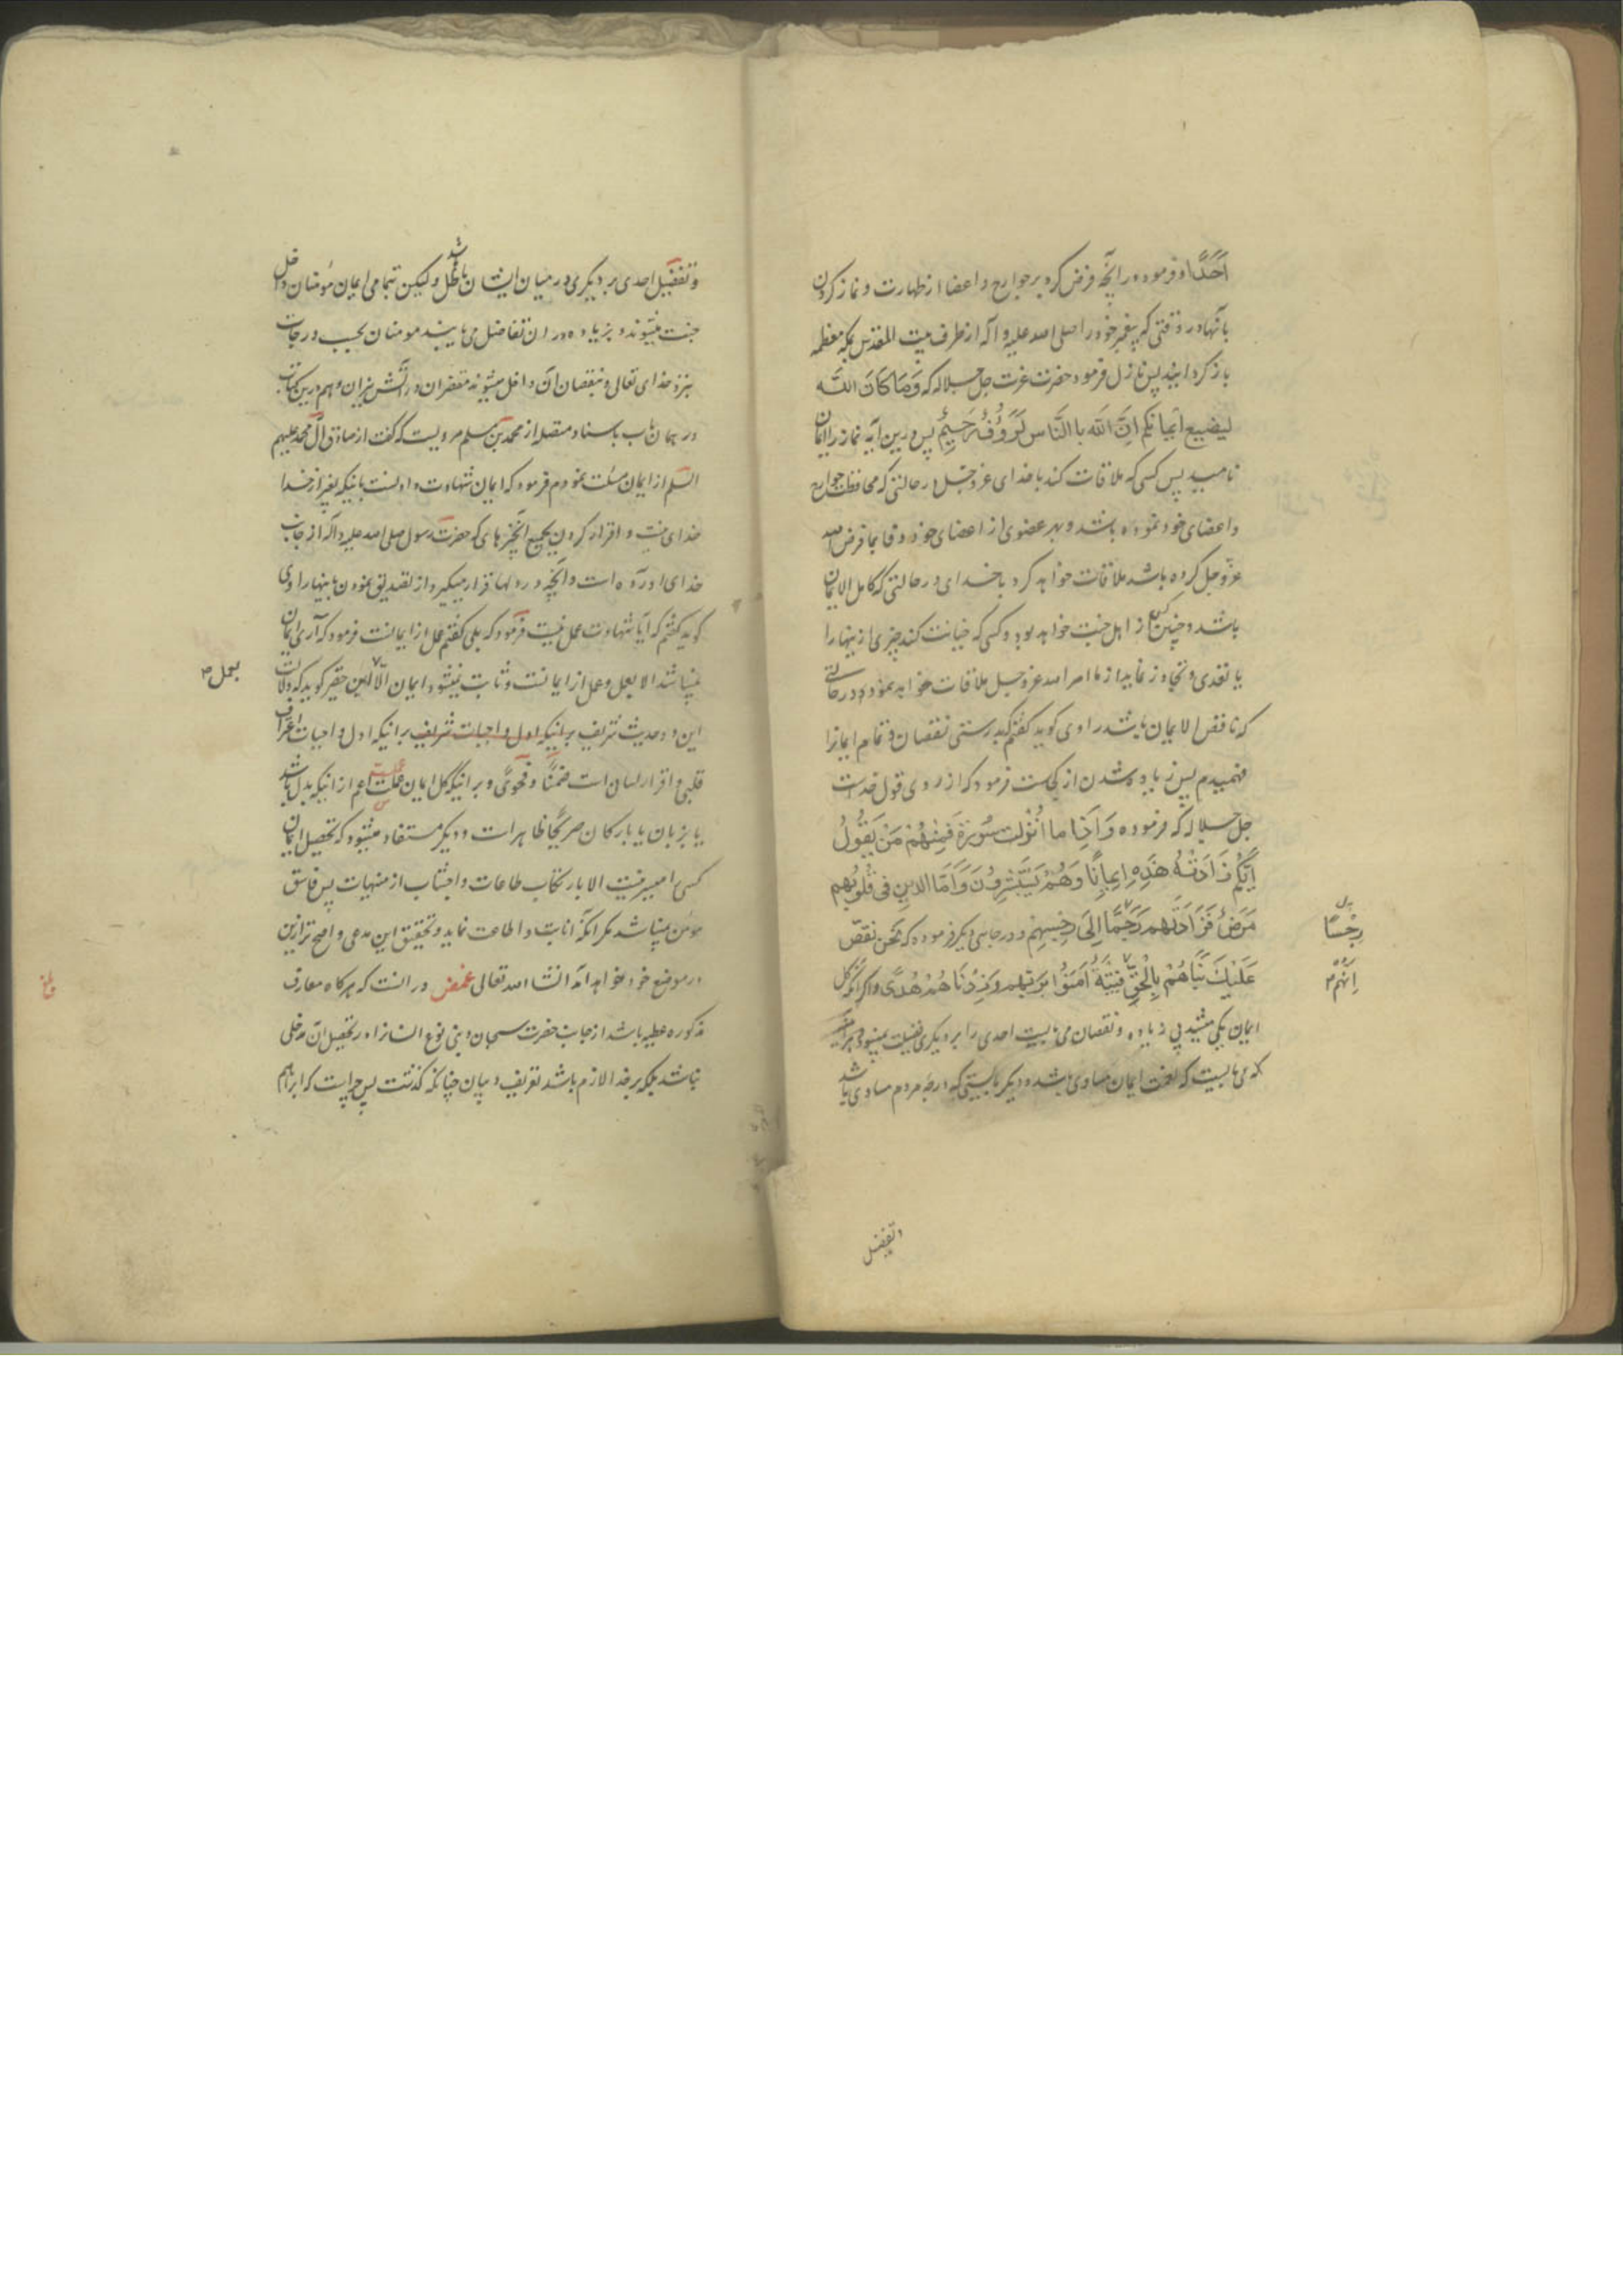 اَحَدًا و فرموده در آنچه فرض کرد بر جوارح و اعضا از طهارت و نماز کردن
بآنها و در وقتی که پیغمبر خود را صلی الله علیه و آله از طرف بیت المقدس بمکه معظمه
باز کردانید پس نازل فرمود حضرت عزت جل جلاله که وَمَا كَانَ اللَّه
لیضیع ایمانکم اِنَّ اللَه باالنَّاس لَرَؤُفٌ رَحِیْمٌ پس درین آیه نماز را ایمان
نامید پس کسی که ملاقات کند با خدای عز و جل در حالتی که محافظت جوارح
و اعضای خود نموده باشد و بهر عضوی از اعضای خود وفا بما فرض الله
عز و جل کرده باشد ملاقات خواهد کرد با خدای در حالتی که کامل الایمان
باشد و چنین کس از اهل جنت خواهد بود و کسی که خیانت کند چیزی از ینها را
یا تعدی و تجاوز نماید از ما امر الله عز و جل ملاقات خواهد نمود در حالتی
که ناقص الایمان باشد راوی کوید کفتم که بدرستی نقصان و تمام ایمانرا
فهمیدم پس زیاده شدن از کجاست فرمود که از روی قول خداست
جل جلاله که فرموده وَ اَذِا ما اُنْزِلت سُوْرَةٌ فَمِنْهُمْ مَنْ یَقُوْلُ
اَیُّکُمْ زَادَتْهُ هَذِهِ اِیمانًا وَهُمْ یَسْتَبْشِرُوْنَ وَ اَمّا الذین فی قُلُوْبِهِم
مَرَضٌ فَزَادَتْهم رَجسًا اِلَی رِجْسِهِم و در جای دیکر فرموده که نَحْن نقصّ
رِجْسًا
عَلَیْكَ نَبَاَهُمْ بِالْحَقِّ فِتْیَةٌ اٰمَنُوْا بِرَبّهم وَ زِدْنَاهُمْ هُدًی و اکر آنکه کل
اِنَّهُمْ
ایمان یکی میشد بی زیاده و نقصان می بایست احدی را بر دیکری فضیلت نمیبود
که می بایست که نعمت ایمان مساوی باشد و دیکر بایستی که درجه مردم مساوی باشد
و تفضیل
و تفضیل احدی بر دیکری در میان ایشان باطل باشد و لیکن بتمامی ایمان مؤمنان داخل
جنت میشوند و بزیاده در ان تفاضل می یابند مومنان بحسب درجات
نزد خدای تعالی و بنقصان آن داخل میشوند مقصران در آتش نیران و هم درین کتاب
در همان باب باسناد متصله از محمد بن مسلم مرویست که کفت از صادق آل محمد علیهم
السلم از ایمان مسئلت نمودم فرمود که ایمان شهادت دادنست باینکه بغیر از خدا
خدای نیست و اقرار کردن بجمیع آنچیزهای که حضرت رسول صلی الله علیه و آله از جانب
خدای اورده است و آنچه در دلها قرار میکیرد از تصدیق نمودن باینها راوی
کوید کفتم که آیا شهادت عمل نیست فرمود که بلی کفتم عمل از ایمانست فرمود که آری ایمان
نمیباشد الا بعمل و عمل از ایمانست و ثابت نمیشود ایمان الّا این حقیر کوید که دلالت
بعمل
این دو حدیث شریف برانیکه اول واجبات شریف برانیکه اول واجبات اعتراف
قلبی و اقرار لسان است ضمنًا و فحوًی و برانیکه کل ایمان عملست اعم از انیکه بدل باشد
یا بزبان یا بارکان صریحًا ظاهر است و دیکر مستفاد میشود که تحصیل ایمان
کسی را میسر نیست الا بارتکاب طاعات و اجتناب از منهیات پس فاسق
مؤمن نمیباشد مکر آنکه انابت و اطاعت نماید و تحقیق این مدعی واضح تر ازین
در موضع خود خواهد آمد انشا الله تعالی غمض در انست که هرکاه معارف
مذکوره عطیه باشد از جانب حضرت سبحان و بنی نوع انسانرا در تحصیل آن مدخلی
نباشد بلکه بر خدا لازم باشد تعریف و بیان چنانکه کذشت پس چراست که ابراهیم